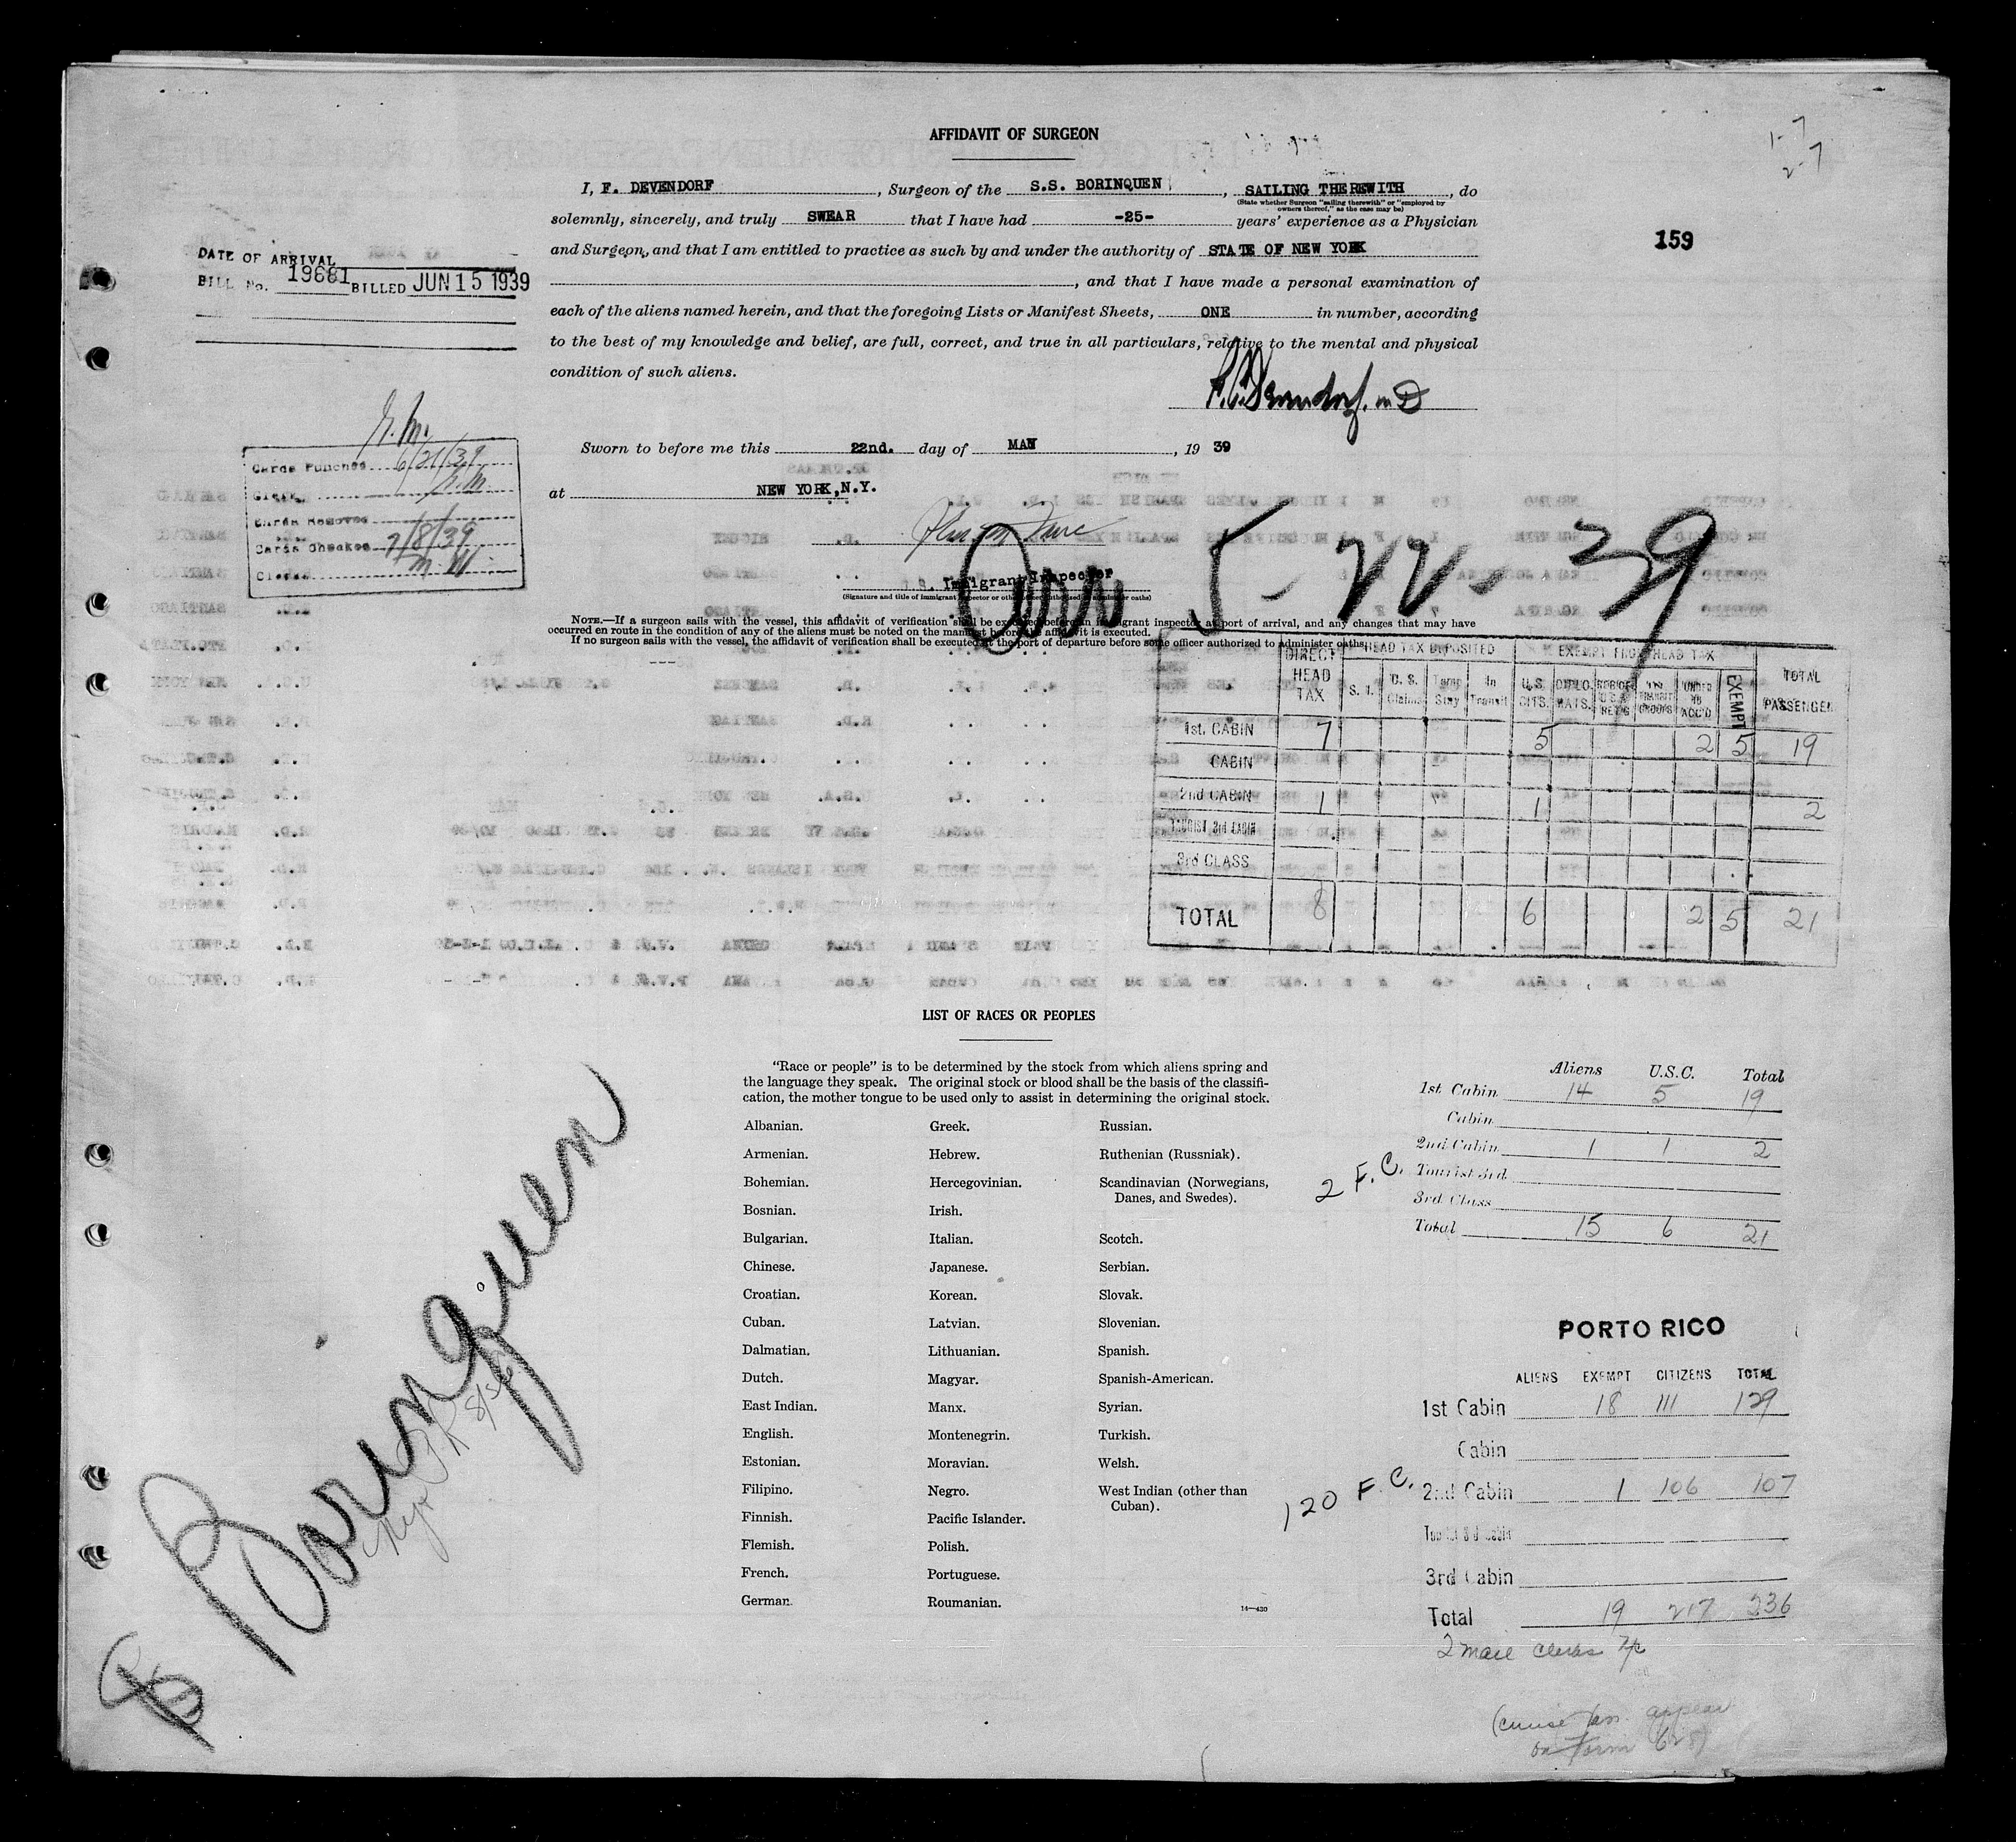 AFFIDAVIT OF SURGEON
1-7
2-7
I, F. DEVENDORF, Surgeon of the S.S. BORINQUEN, SAILING THEREWITH, do
(State whether Surgeon "sailing therewith" or "employed by
owners thereof," as the case may be)
solemnly, sincerely, and truly SWEAR that I have had -25- years' experience as a Physician
and Surgeon, and that I am entitled to practice as such by and under the authority of STATE OF NEW YORK
, and that I have made a personal examination of
each of the aliens named herein, and that the foregoing Lists or Manifest Sheets, ONE in number, according
to the best of my knowledge and belief, are full, correct, and true in all particulars, relative to the mental and physical
condition of such aliens.
159
DATE OF ARRIVAL
BILL No. 19681 BILLED JUN 15 1939
Cards Punched 6/21/39
Clerk
Cards Removed
Cards Checked 7/8/39
Clerk
Sworn to before me this 22nd. day of MAY, 19 39
at NEW YORK, N.Y.
Immigrant Inspector
(Signature and title of immigrant inspector or other officer authorized to administer oaths)
Arr 5-22-39
NOTE.—If a surgeon sails with the vessel, this affidavit of verification shall be executed before an immigrant inspector at port of arrival, and any changes that may have
occurred en route in the condition of any of the aliens must be noted on the manifest before the affidavit is executed.
If no surgeon sails with the vessel, the affidavit of verification shall be executed at the port of departure before some officer authorized to administer oaths.
DIRECT HEAD TAX HEAD TAX DEPOSITED EXEMPT FROM HEAD TAX TOTAL PASSENGER
S. I. U. S. Claims Temp Stay In Transit U.S. CITS. DIPLO. MATS. UNDER 16 ACC'D EXEMPT
1st. CABIN 7 5 2 5 19
CABIN
2nd CABIN 1 1 2
TOURIST 3rd CABIN
3rd CLASS
TOTAL 8 6 2 5 21
LIST OF RACES OR PEOPLES
"Race or people" is to be determined by the stock from which aliens spring and
the language they speak. The original stock or blood shall be the basis of the classifi-
cation, the mother tongue to be used only to assist in determining the original stock.
Albanian.
Armenian.
Bohemian.
Bosnian.
Bulgarian.
Chinese.
Croatian.
Cuban.
Dalmatian.
Dutch.
East Indian.
English.
Estonian.
Filipino.
Finnish.
Flemish.
French.
German.
Greek.
Hebrew.
Hercegovinian.
Irish.
Italian.
Japanese.
Korean.
Latvian.
Lithuanian.
Magyar.
Manx.
Montenegrin.
Moravian.
Negro.
Pacific Islander.
Polish.
Portuguese.
Roumanian.
Russian.
Ruthenian (Russniak).
Scandinavian (Norwegians,
Danes, and Swedes).
Scotch.
Serbian.
Slovak.
Slovenian.
Spanish.
Spanish-American.
Syrian.
Turkish.
Welsh.
West Indian (other than
Cuban).
14—430
Borinquen
Aliens U.S.C. Total
1st Cabin 14 5 19
Cabin
2nd Cabin 1 1 2
2 F.C.
Tourist 3rd
3rd Class
Total 15 6 21
PORTO RICO
ALIENS EXEMPT CITIZENS TOTAL
1st Cabin 18 111 129
Cabin
120 F.C.
2nd Cabin 1 106 107
3rd Cabin
Total 19 217 236
2 mail clerks
(cruise pass. appear
on Form 628)